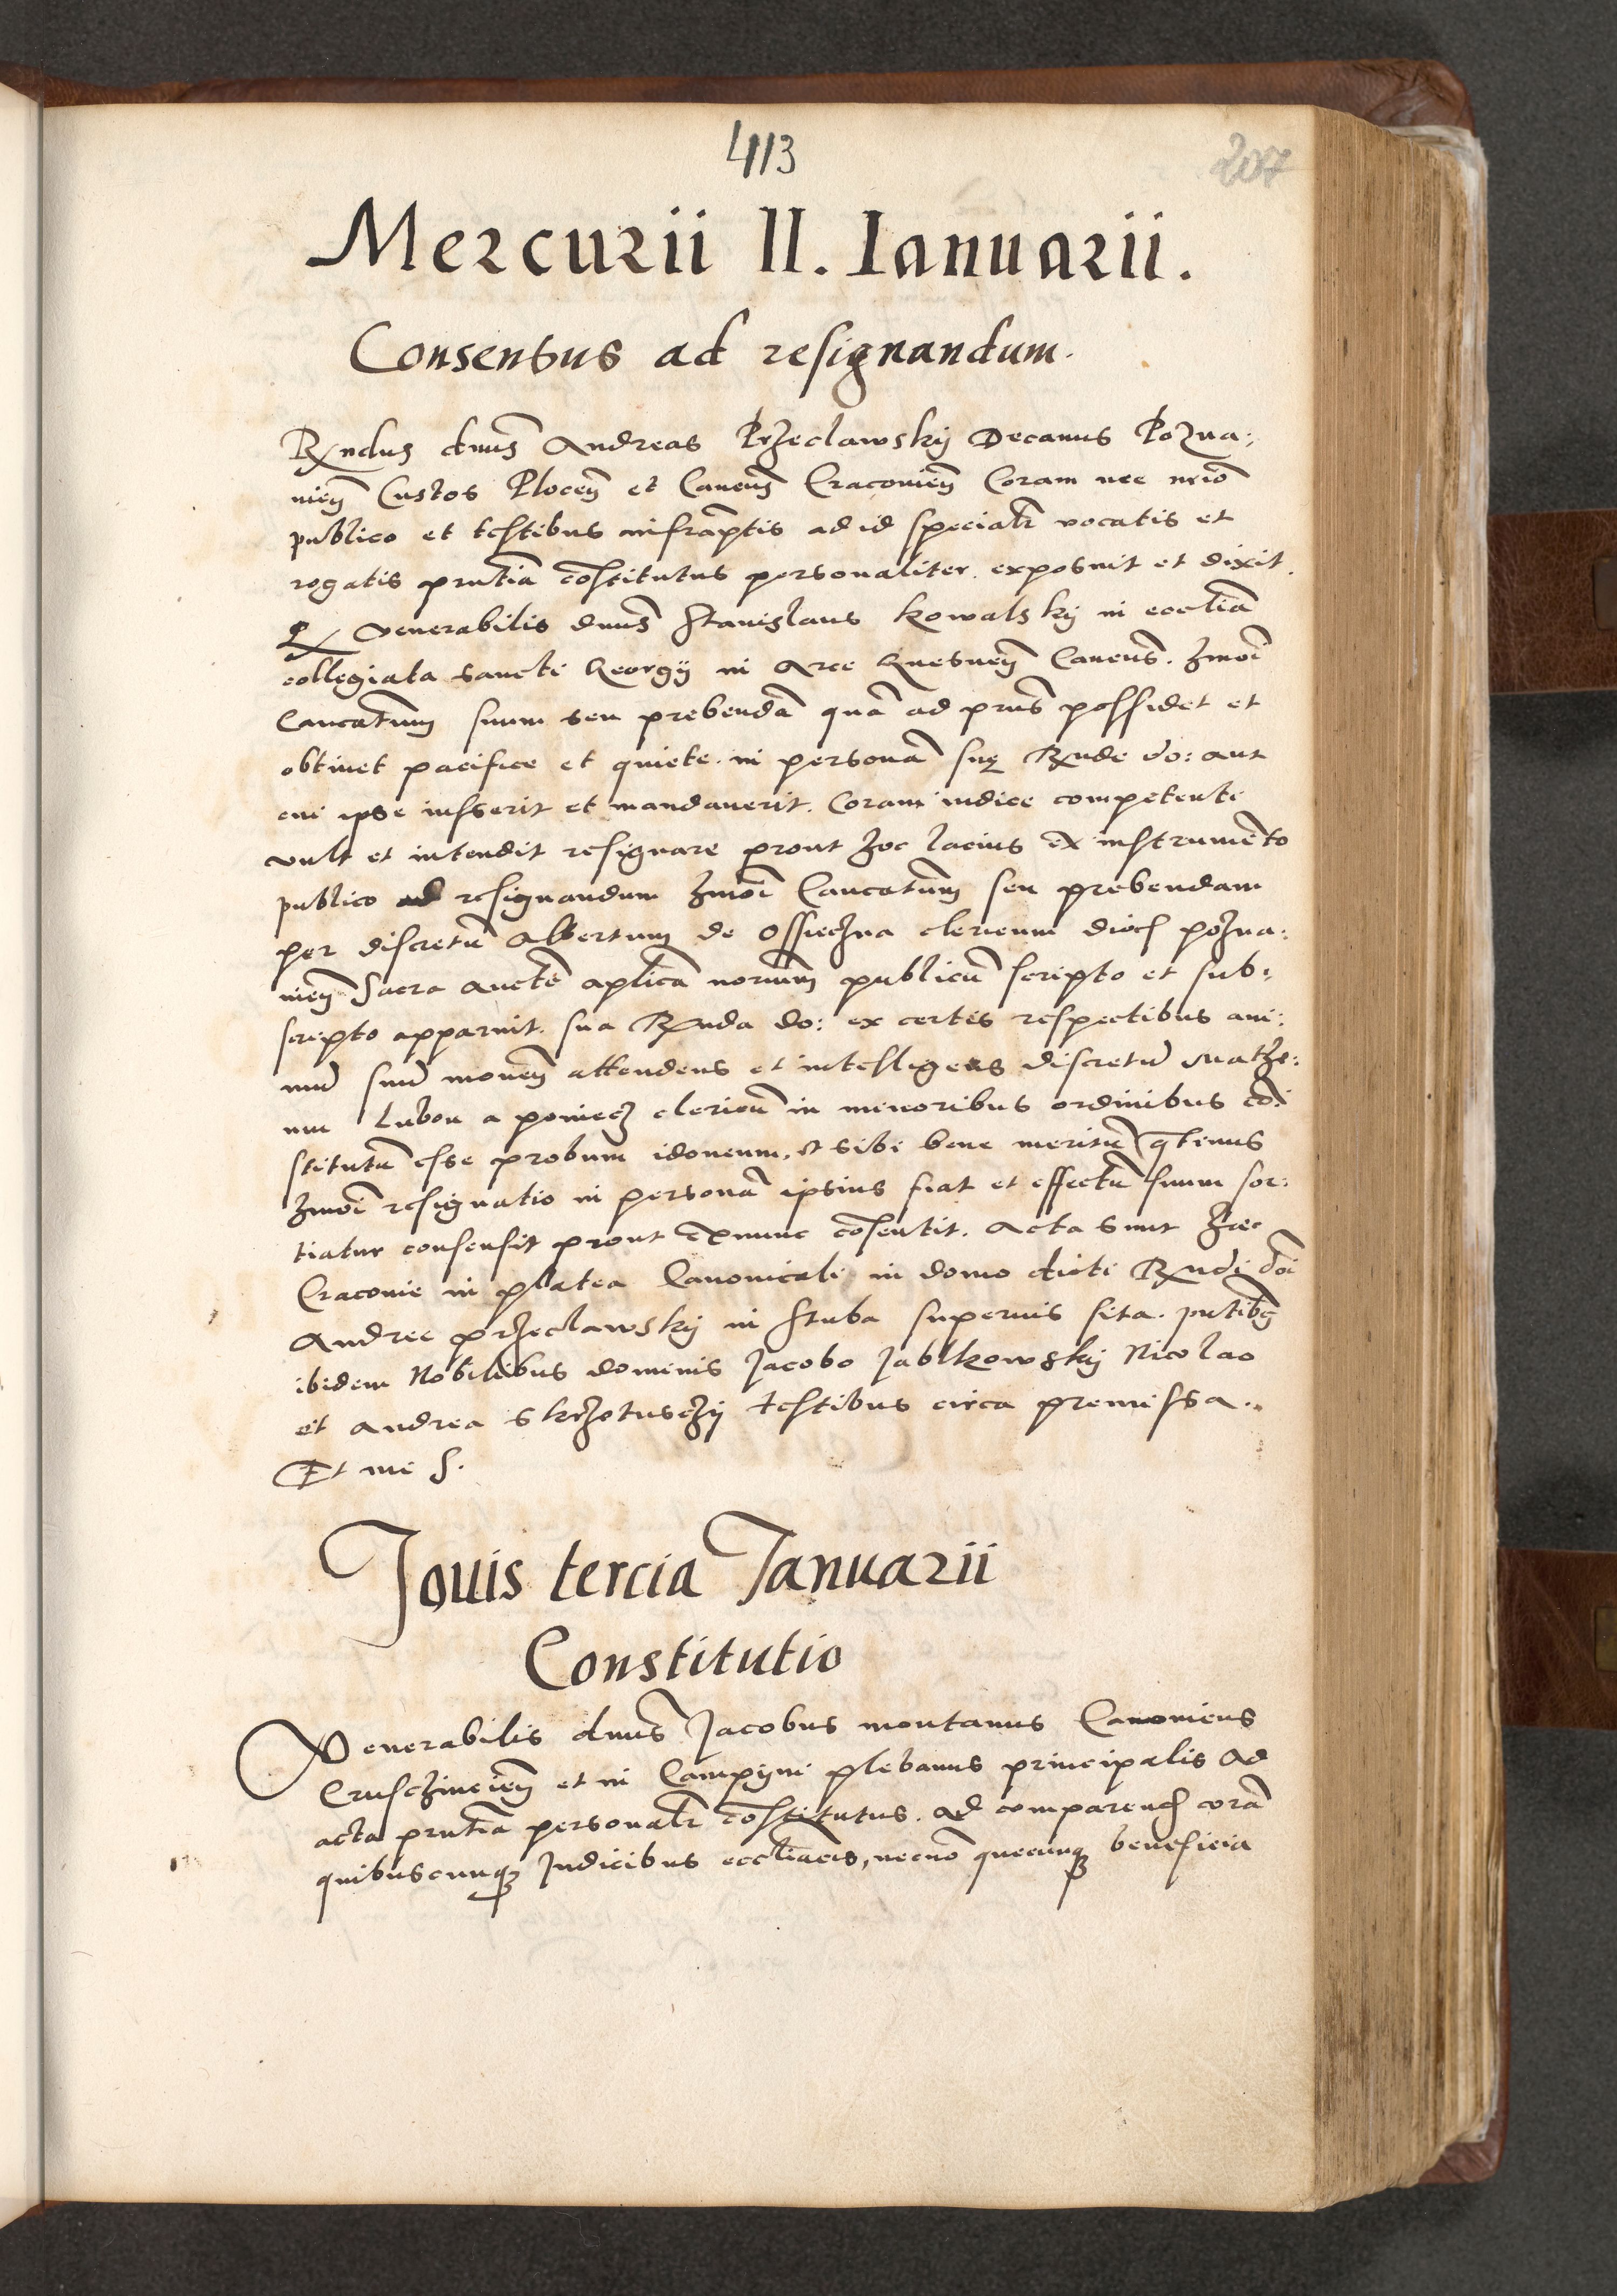 413
207
Mercurii II. Ianuarii.
Consensus ad resignandum.
Rndus dnus Andreas Przeclawskij Decanus Pozna:
nien Custos Plocen et Cancus Cracovien Coram me nrio
publico et testibus infraptis ad id specialr vocatis et
rogatis prntia costitutus personaliter. exposuit et dixit.
Q venerabilis dnus Stanislaus Kowalskij in ecclia
collegiata sancti Georgij in Arce Gnesnen Canens. hmoi
Cancatum suum seu prebenda qua ad prns possidet et
obtinet pacifice et quiete. in persona sue Rnde do: aut
cui ipse iusserit et mandaverit. Coram iudice competenti
vult et intendit resignare prout hoc lacius ex instrumeto
publico ad resignandum hmoi Cancatum seu prebendam
per discretu Albertum de Ossieczna clericum dioc pozna:
nien Sacra aucte aplica norium publicu scripto et sub:
scripto apparuit. sua Rnda do: ex certis respectibus ani:
mu suu moven attendens et intelligens discretu Mathe:
um Lubon a poniecz clericu in minoribus ordinibus co:
stitutu esse probum idoneum, et sibi bene meritu qtinus
hmoi resignatio in persona ipsius fiat et effectu suum sor:
tiatur consensit prout exnunc cosentit. Acta sunt hec
Cracovie in platea Canonicali in domo dicti Rndi doi
Andree przeclawskij in stuba supernis sita. pntibg
ibidem Nobilibus dominis Jacobo Jablkowskij Nicolao
et Andrea Skrzetusczij testibus circa premissa..
Et me S.
Jovis tercia Januarii
Constitutio
Venerabilis dnus Jacobus montanus Canonicus
Cruschuicien et in Campijni plebanus principalis ad
acta prntia personalr costitutus. ad comparend cora
quibuscunq Judicibus eccliacis, necno quecunq beneficia